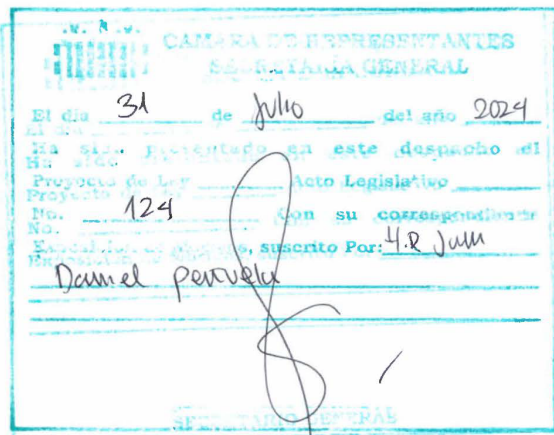 CAMARA DE REPRESENTANTES
SECRETARIA GENERAL
El día 31 de Julio del año 2024
Ha sido presentado en este despacho el
Proyecto de Ley Acto Legislativo
No. 124 Con su correspondiente
Exposición de Motivos, suscrito Por: H.R Juan
Daniel Peñuela
SECRETARIO GENERAL